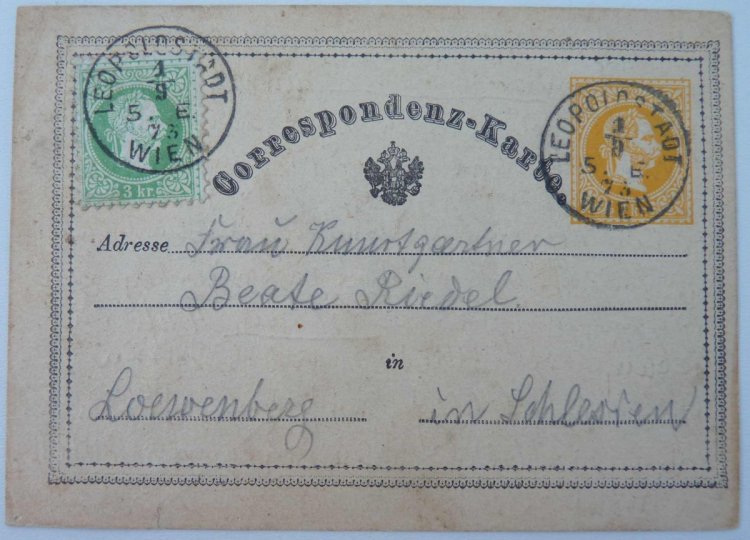 LEOPOLDSTADT
1
9
5. E.
73
WIEN
3 kr.
Correspondenz-Karte.
LEOPOLDSTADT
1
9
5. E.
73
WIEN
Adresse Frau Kunstgärtner
Beate Riedel
in
Loewenberg in Schlesien